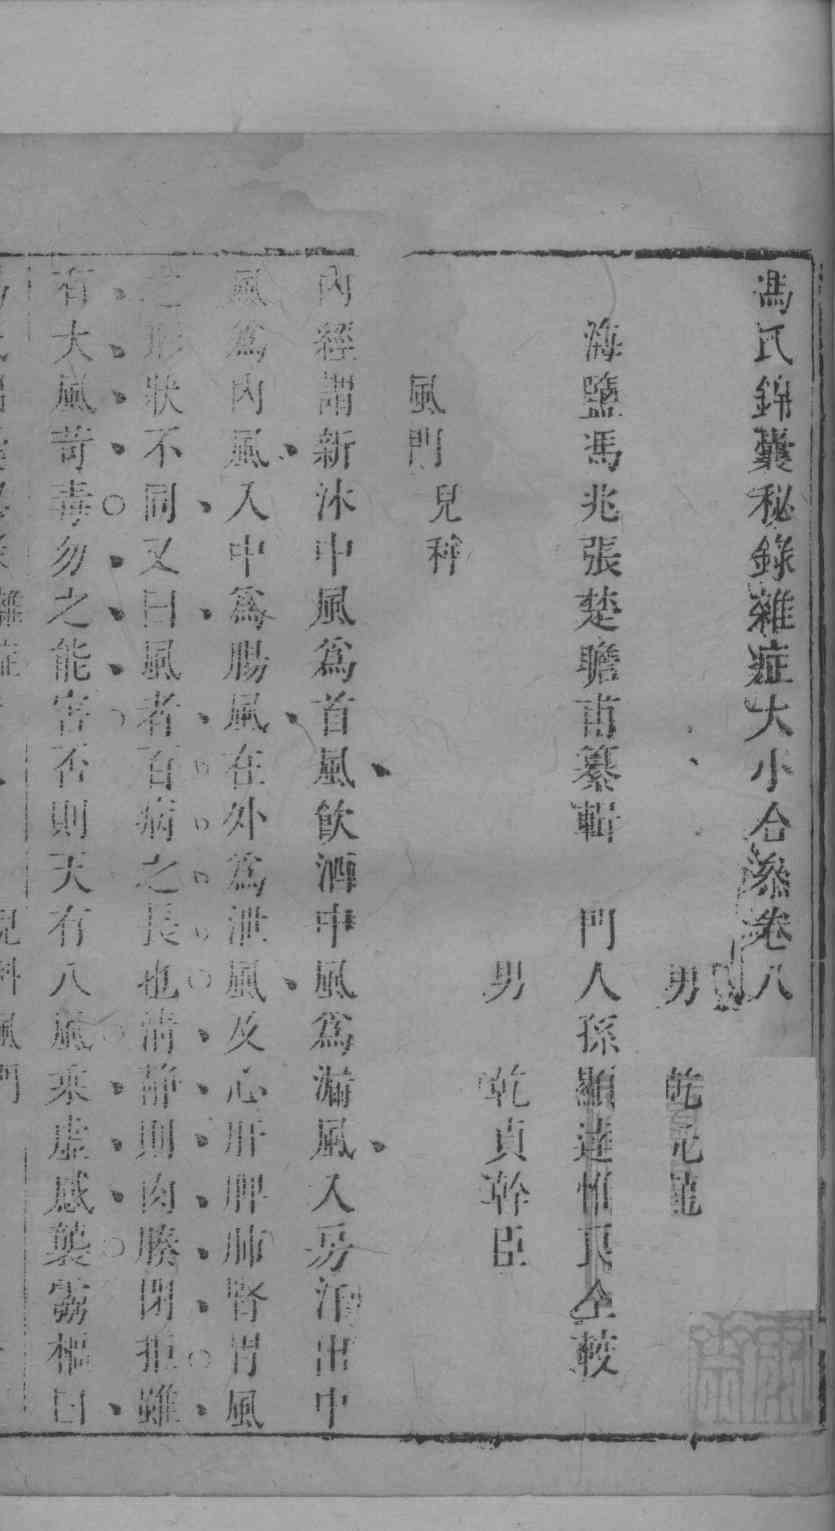 馮氏錦囊秘錄雜症大小合叅卷八
男 乾元龍
海鹽馮兆張楚瞻甫纂輯 門人孫顯達惟良仝較
男 乾貞幹臣
風門 兒科
內經謂新沐中風爲首風飲酒中風爲漏風入房汗出中
風爲內風入中爲腸風在外爲泄風及心肝脾肺腎胃風
之形狀不同又曰風者百病之長也清靜則肉腠閉拒雖
有大風苛毒勿之能害否則天有八風乘虛感襲靈樞曰
雜症 兒科風門